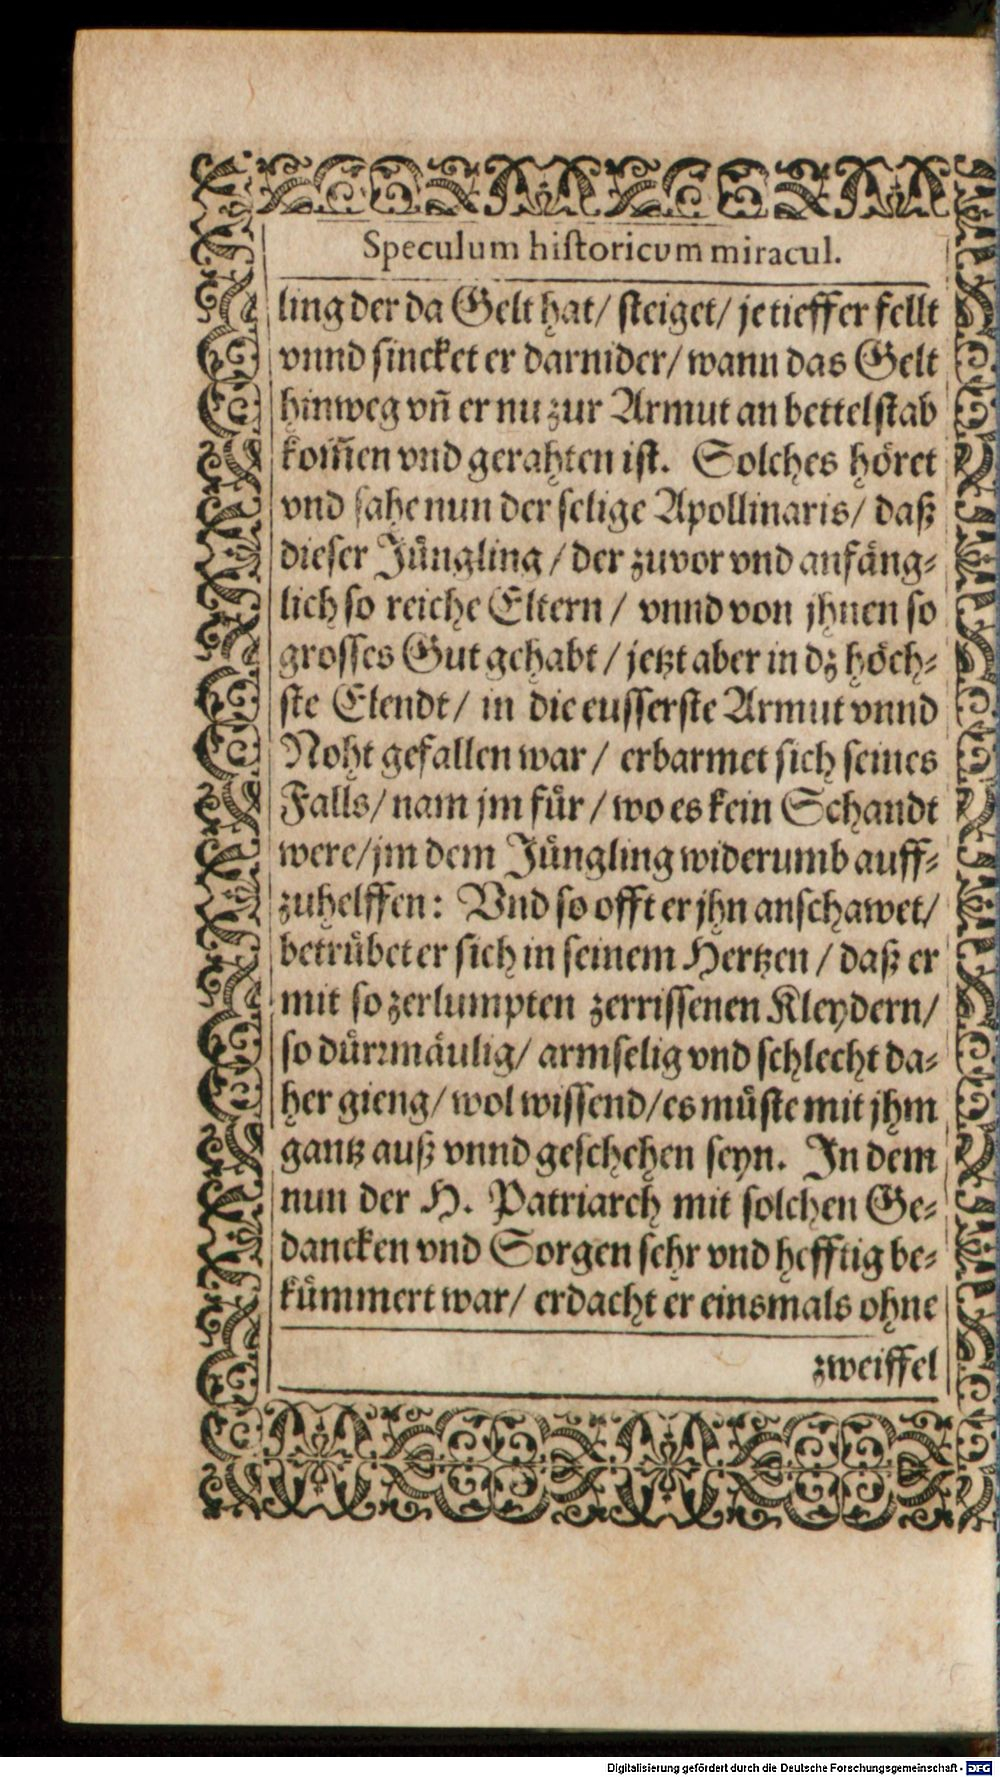 Speculum hiſtoricum miracul.
ling der da Gelt hat/ ſteiget/ je tieffer fellt
vnnd ſincket er darnider/ wann das Gelt
hinweg vn̄ er nu zur Armut an bettelſtab
kom̄en vnd gerahten iſt. Solches höret
vnd ſahe nun der ſelige Apollinaris/ daß
dieſer Jüngling / der zuvor vnd anfäng⸗
lich ſo reiche Eltern / vnnd von jhnen ſo
groſſes Gut gehabt / jetzt aber in dz höch⸗
ſte Elendt/ in die euſſerſte Armut vnnd
Noht gefallen war / erbarmet ſich ſeines
Falls/ nam jm für / wo es kein Schandt
were/ jm dem Jüngling widerumb auff⸗
zuhelffen: Vnd ſo offt er jhn anſchawet/
betrübet er ſich in ſeinem Hertzen / daß er
mit ſo zerlumpten zerriſſenen Kleydern/
ſo dürꝛmäulig/ armſelig vnd ſchlecht da⸗
her gieng/ wol wiſſend/ es müſte mit jhm
gantz auß vnnd geſchehen ſeyn. In dem
nun der H. Patriarch mit ſolchen Ge⸗
dancken vnd Sorgen ſehr vnd hefftig be⸗
kümmert war/ erdacht er einsmals ohne
zweiffel
Digitalisierung gefördert durch die Deutsche Forschungsgemeinschaft - DFG